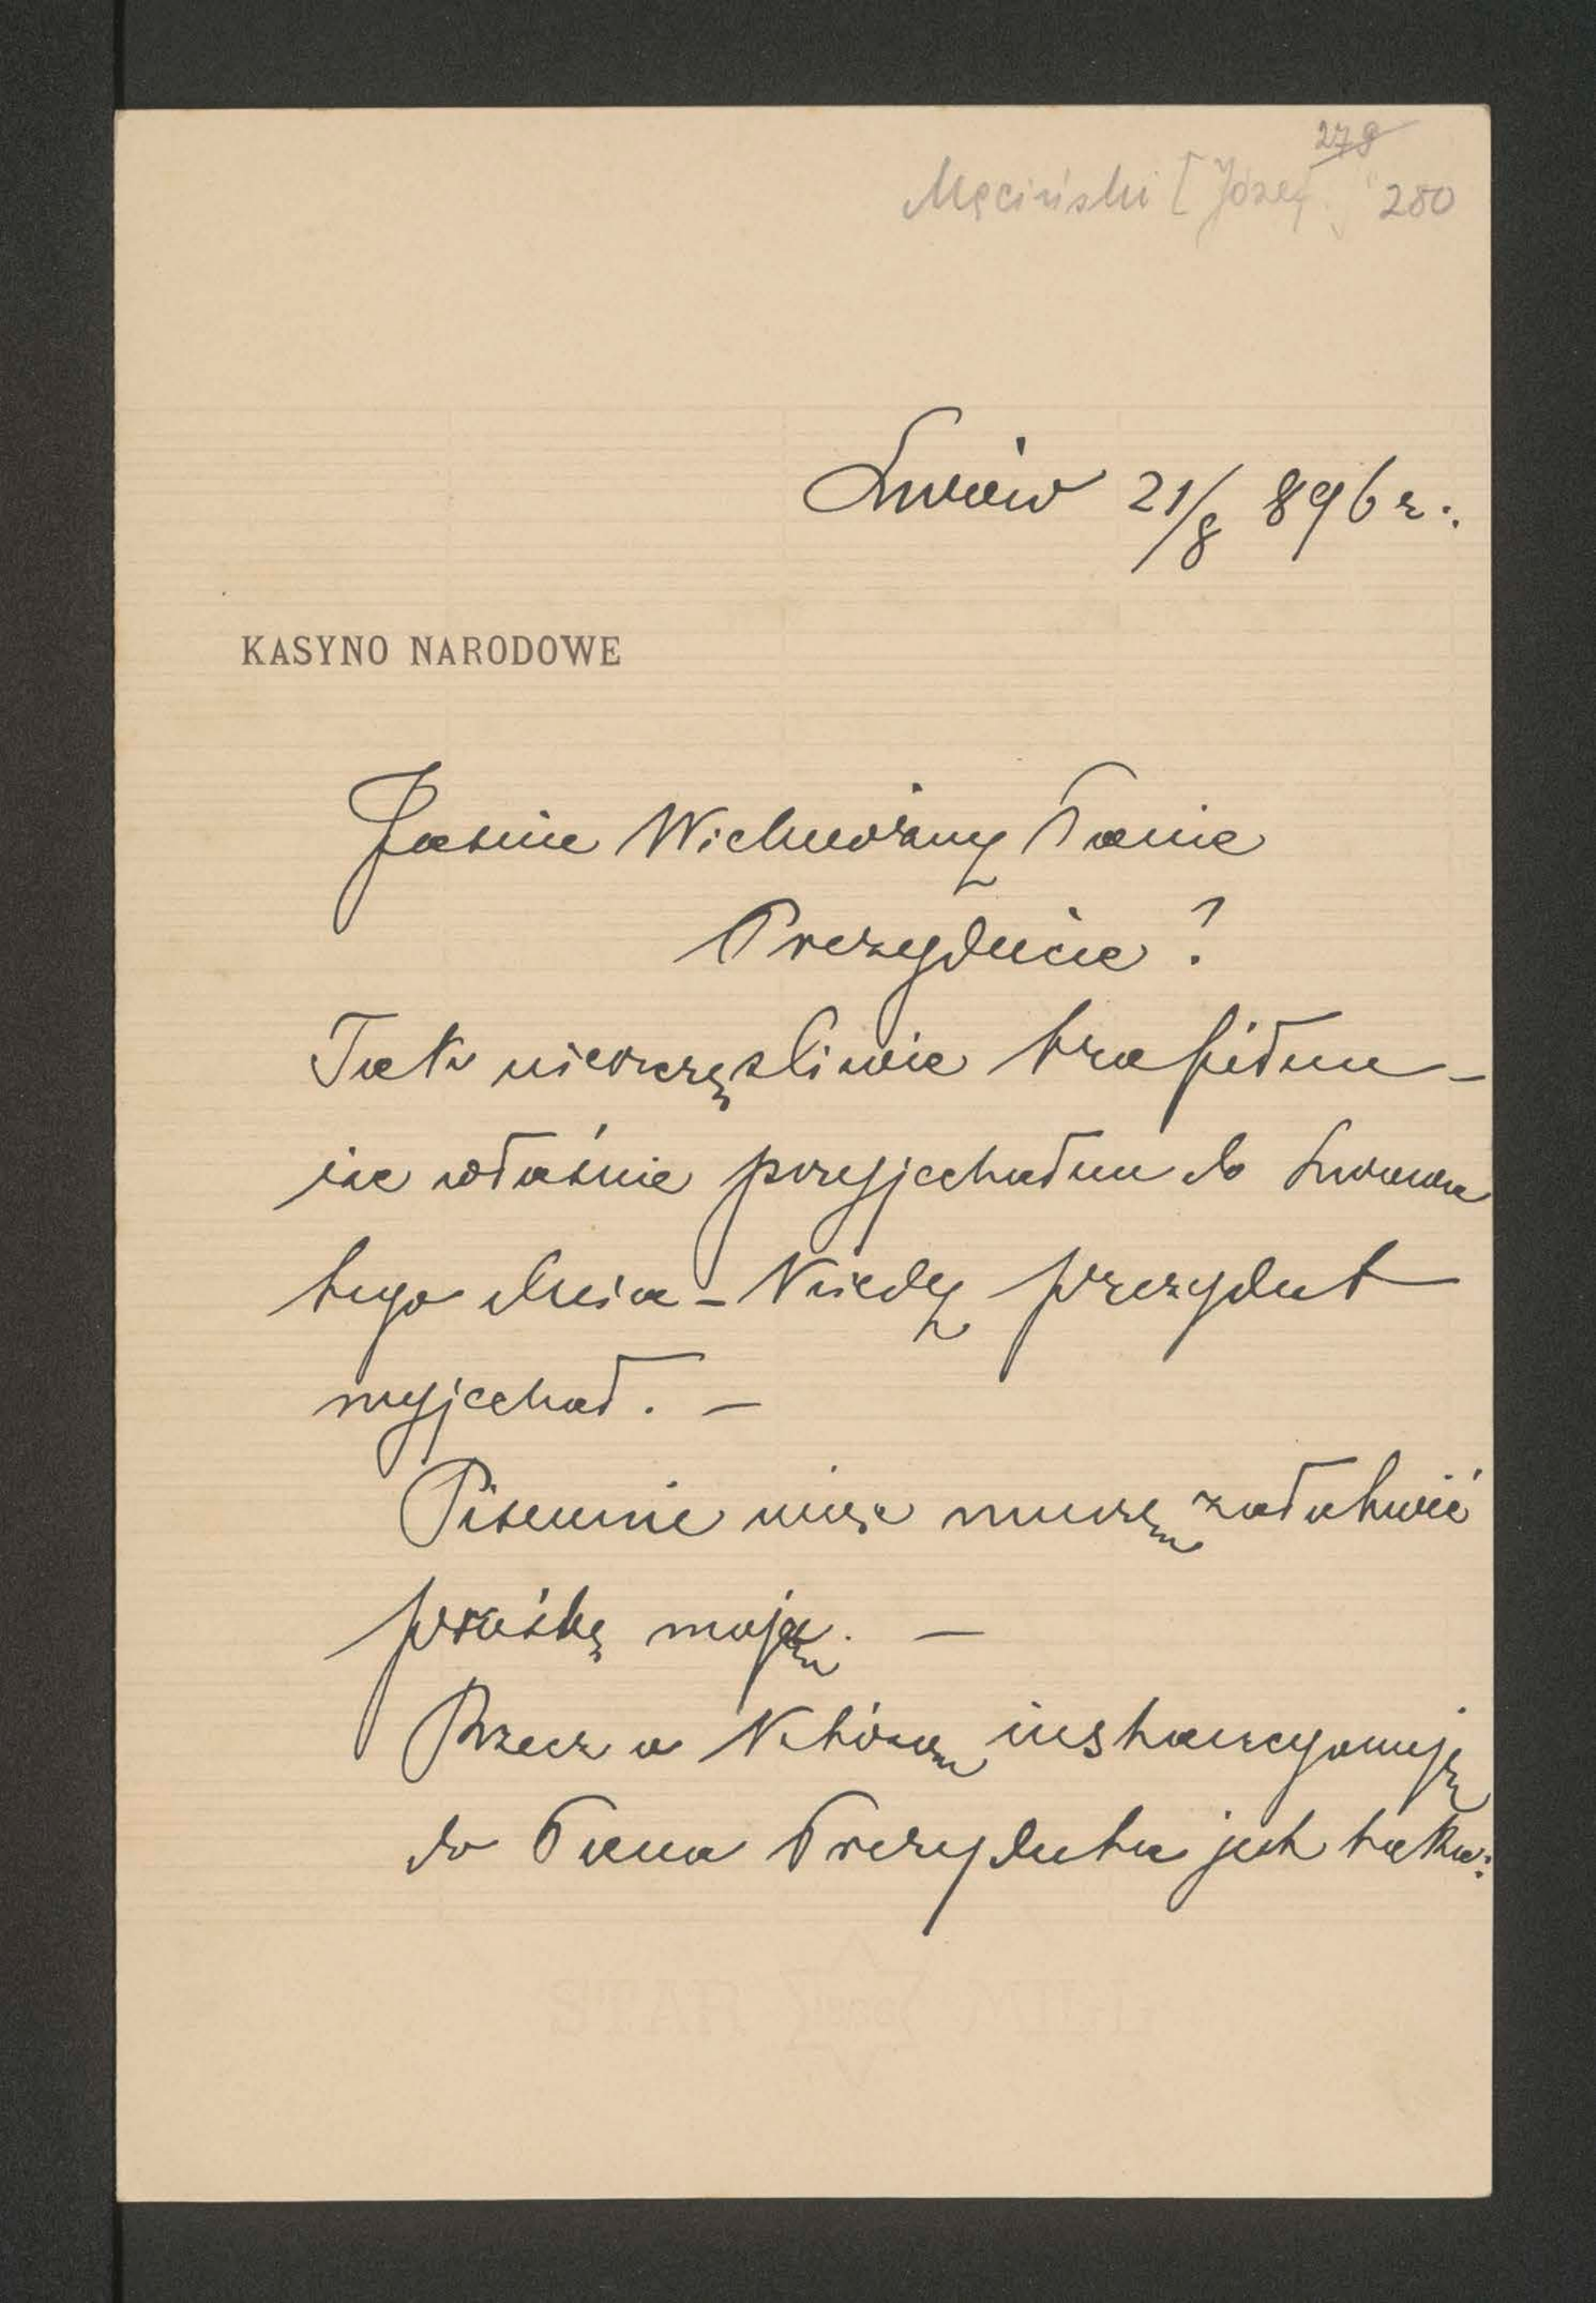 279
Męciński [Józef] 280
Lwów 21/8 896 r.
KASYNO NARODOWE
Jaśnie Wielmożny Panie
Prezydencie!
Tak nieszczęśliwie trafiłem -
iże właśnie przyjechałem do Lwowa
tego dnia - Kiedy prezydent
wyjechał. -
Pisemnie więc muszę załatwić
prośbę moją. -
Rzecz o Którą instancyonuję
do Pana Prezydenta jest taka: